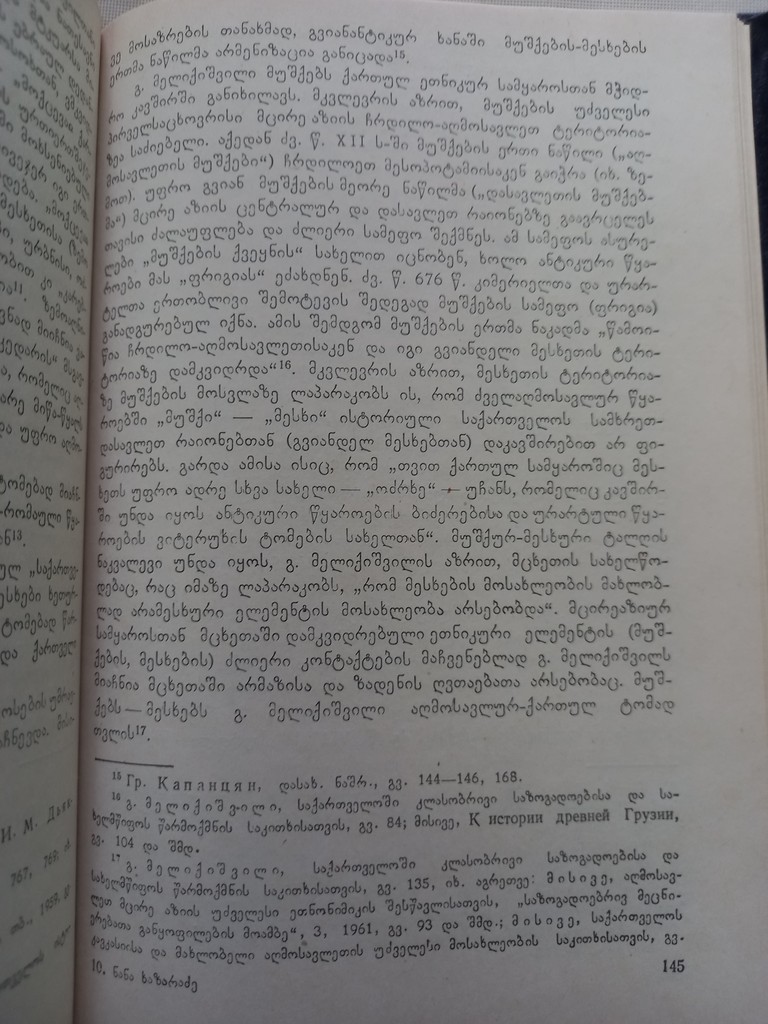 ვე მოსაზრების თანახმად, გვიანანტიკურ ხანაში მუშქების-მესხების
ერთმა ნაწილმა არმენიზაცია განიცადა¹⁵.
გ. მელიქიშვილი მუშქებს ქართულ ეთნიკურ სამყაროსთან მჭიდ-
რო კავშირში განიხილავს. მკვლევრის აზრით, მუშქების უძველესი
პირველსაცხოვრისი მცირე აზიის ჩრდილო-აღმოსავლეთ ტერიტორია-
ზეა საძიებელი. აქედან ძვ. წ. XII ს-ში მუშქების ერთი ნაწილი („აღ-
მოსავლეთის მუშქები“) ჩრდილოეთ მესოპოტამიისაკენ გაიჭრა (იხ. ზე-
მოთ). უფრო გვიან მუშქების მეორე ნაწილმა („დასავლეთის მუშქებ-
მა“) მცირე აზიის ცენტრალურ და დასავლეთ რაიონებზე გაავრცელეს
თავისი ძალაუფლება და ძლიერი სამეფო შექმნეს. ამ სამეფოს ასურე-
ლები „მუშქების ქვეყნის“ სახელით იცნობენ, ხოლო ანტიკური წყა-
როები მას „ფრიგიას“ ეძახდნენ. ძვ. წ. 676 წ. კიმერიელთა და ურარ-
ტელთა ერთობლივი შემოტევის შედეგად მუშქების სამეფო (ფრიგია)
განადგურებულ იქნა. ამის შემდგომ მუშქების ერთმა ნაკადმა „წამოი-
წია ჩრდილო-აღმოსავლეთისაკენ და იგი გვიანდელი მესხეთის ტერი-
ტორიაზე დამკვიდრდა“¹⁶. მკვლევრის აზრით, მესხეთის ტერიტორია-
ზე მუშქების მოსვლაზე ლაპარაკობს ის, რომ ძველაღმოსავლურ წყა-
როებში „მუშქი“ — „მესხი“ ისტორიული საქართველოს სამხრეთ-
დასავლეთ რაიონებთან (გვიანდელ მესხებთან) დაკავშირებით არ ფი-
გურირებს. გარდა ამისა ისიც, რომ „თვით ქართულ სამყაროშიც მეს-
ხეთს უფრო ადრე სხვა სახელი — „ოძრხე“ — უჩანს, რომელიც კავშირ-
ში უნდა იყოს ანტიკური წყაროების ბიძერებისა და ურარტული წყა-
როების ვიტერუხის ტომების სახელთან“. მუშქურ-მესხური ტალღის
ნაკვალევი უნდა იყოს, გ. მელიქიშვილის აზრით, მცხეთის სახელწო-
დებაც, რაც იმაზე ლაპარაკობს, „რომ მესხების მოსახლეობის მახლობ-
ლად არამესხური ელემენტის მოსახლეობა არსებობდა“. მცირეაზიურ
სამყაროსთან მცხეთაში დამკვიდრებული ეთნიკური ელემენტის (მუშ-
ქების, მესხების) ძლიერი კონტაქტების მაჩვენებლად გ. მელიქიშვილს
მიაჩნია მცხეთაში არმაზისა და ზადენის ღვთაებათა არსებობაც. მუშ-
ქებს — მესხებს გ. მელიქიშვილი აღმოსავლურ-ქართულ ტომად
თვლის¹⁷.
¹⁵ Гр. Капанцян, დასახ. ნაშრ., გვ. 144—146, 168.
¹⁶ გ. მელიქიშვილი, საქართველოში კლასობრივი საზოგადოებისა და სა-
ხელმწიფოს წარმოქმნის საკითხისათვის, გვ. 84; მისივე, К истории древней Грузии,
გვ. 104 და შმდ.
¹⁷ გ. მელიქიშვილი, საქართველოში კლასობრივი საზოგადოებისა და
სახელმწიფოს წარმოქმნის საკითხისათვის, გვ. 135, იხ. აგრეთვე: მისივე, აღმოსავ-
ლეთ მცირე აზიის უძველესი ეთნონიმიკის შესწავლისათვის, „საზოგადოებრივ მეცნი-
ერებათა განყოფილების მოამბე“, 3, 1961, გვ. 93 და შმდ.; მისივე, საქართველოს
კავკასიისა და მახლობელი აღმოსავლეთის უძველესი მოსახლეობის საკითხისათვის, გვ.
10. ნანა ხაზარაძე
145